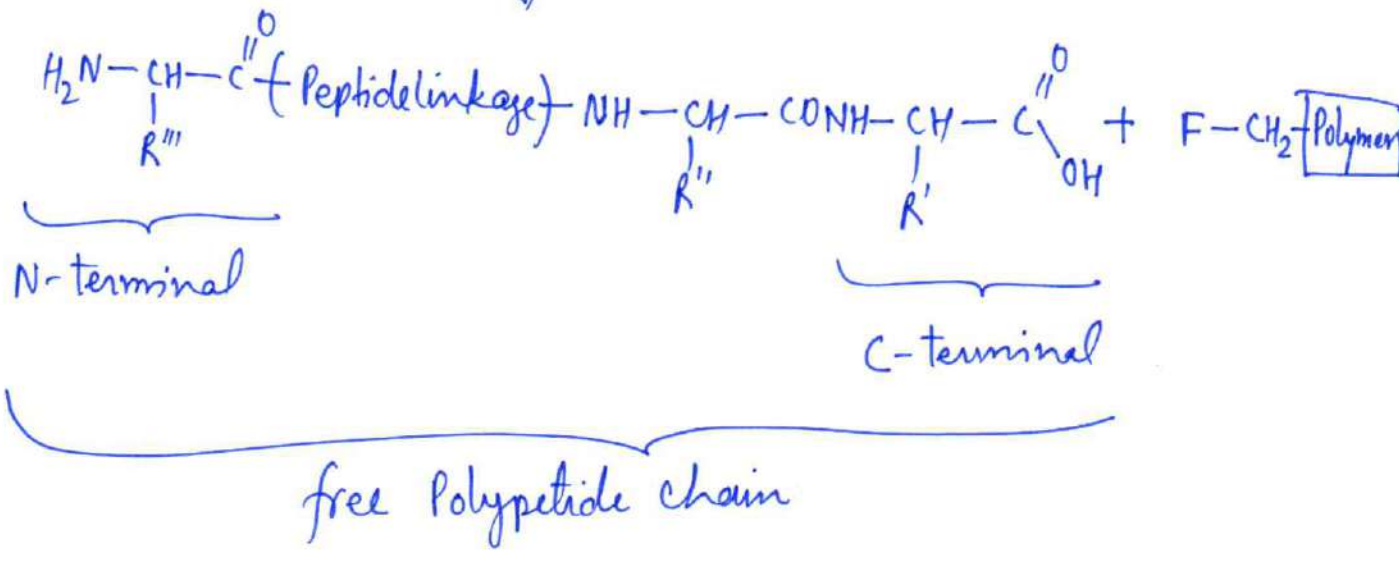 H₂N—CH—C(=O)—(Peptidelinkage)—NH—CH—CONH—CH—C(=O)OH + F—CH₂—Polymer
R''' R'' R'
N-terminal
C-terminal
free Polypetide chain